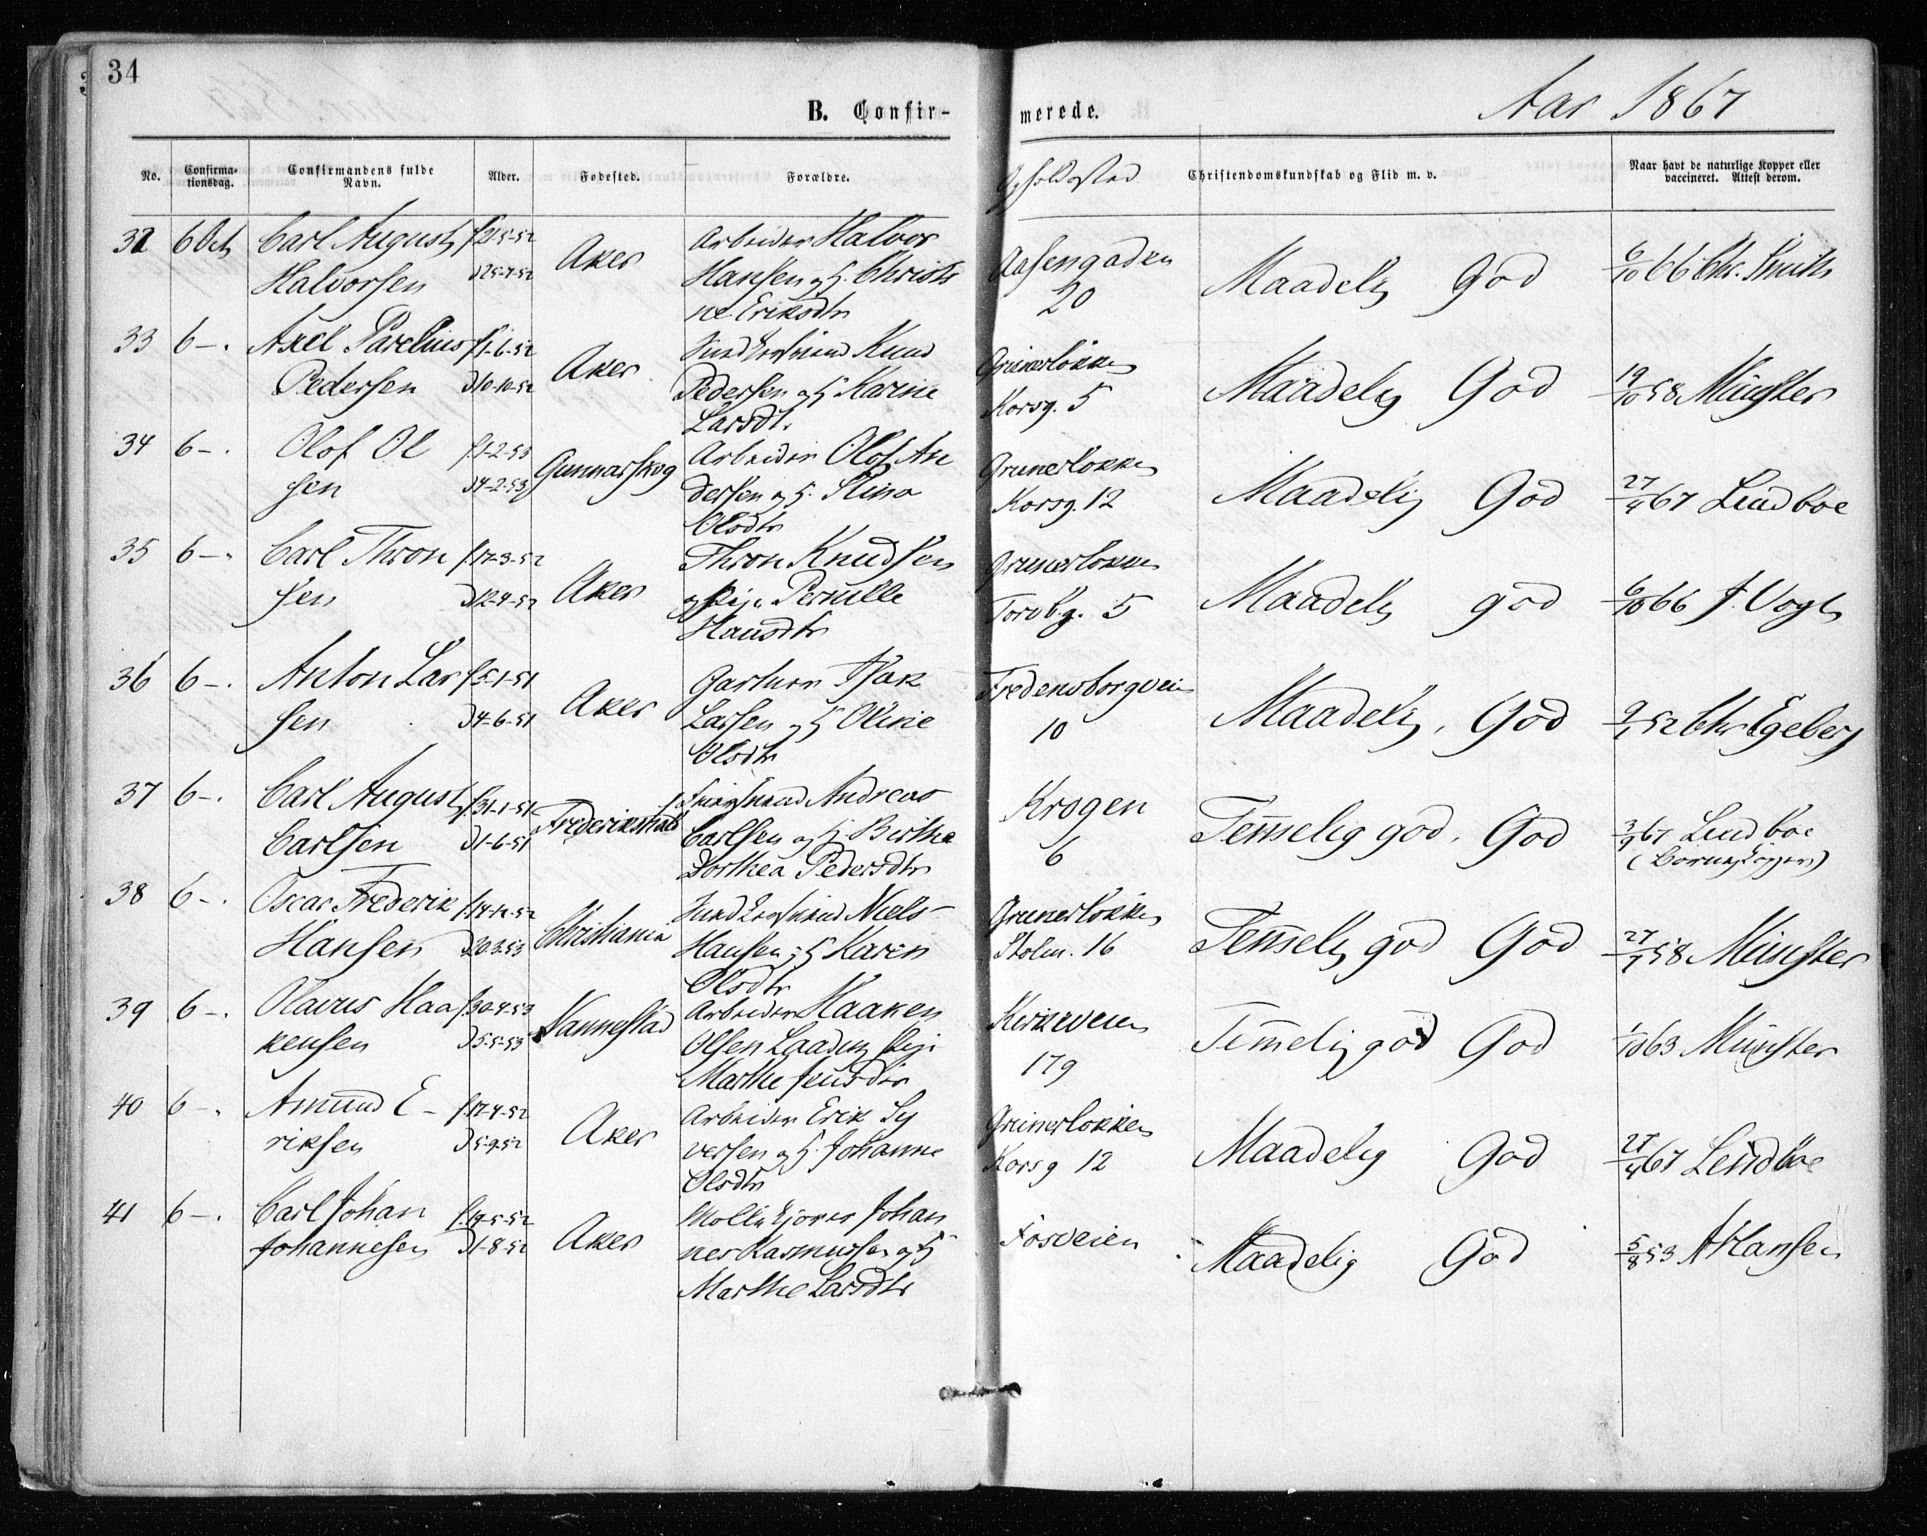 34
B. Confirmerede.
Aar 1867
No. Confirmationsdag. Confirmandens fulde Navn. Alder. Fødested. Forældre. Opholdssted Christendomskundskab og Flid m. v. Naar havt de naturlige Kopper eller vaccineret. Attest derom.
32 6 Oct Carl August f. 21-5-52 Aker Arbeider Halvor Aasengaden Maadelig God 6/10 66 Chr. Smith
Halvorsen d 25-7-52 Hansen og H. Christi 20
ne Eriksdtr
33 6 -. Axel Parelius f 1-6-52 Aker Knud Grünerløkken Maadelig God 19/10 58 Münster
Pedersen d 10-10-52 Pedersen og H Karine Korsg. 5
Larsdt.
34 6 -. Olof Ol f 1-2-53 Gunnarskog Arbeider Olof An Grünerløkken Maadelig God 27/4 67 Lindboe
sen d 4-2-53 dersen og H. Stina Korsg. 12
Olsdtr
35 6 -. Carl Thron f. 17-3-52 Aker Thron Knudsen Grünerløkken Maadelig god 6/10 66 J. Vogt
sen d 12-4-52 og Pige Pernille Torvbg. 5
Hansdtr
36 6 -. Anton Lar f 5-1-51 Aker Gartner Isak Fredensborgveien Maadelig. God 9/1 52 Chr Egeberg
sen d 4-6-51 Larsen og H Oline 10
Olsdtr
37 6 -. Carl August f. 31-1-51 Frederikshald Andreas Krogen Temmelig god. God 3/9 67 Lindboe
Carlsen d 1-6-51 Carlsen og H. Berthe 6 (Børnekopper)
Dorthea Pedersdtr
38 6 -. Oscar Frederik f 14-12-52 Christiania Niels Grünerløkken Temmelig god God 27/7 58 Münster
Hansen d 20-3-53 Hansen og H Karen Stolm. 16
Olsdtr
39 6 -. Olavus Haa f. 30-4-53 Nannestad Arbeider Haaken Kirkeveien Temmelig god God 1/10 63 Münster
kensen d 5-5-53 Olsen Laading Pige 179
Marthe Jensdtr
40 6 -. Amund E- f. 17-4-52 Aker Arbeider Erik Sy Grünerløkken Maadelig God 27/4 67 Lindboe
riksen d 5-9-52 versen og H. Johanne Korsg 12
Olsdtr
41 6 -. Carl Johan f. 19-5-52 Aker Møllekjører Johan Fosveien Maadelig God 5/8 53 A Hansen
Johannesen d 1-8-52 nes Rasmussen og H
Marthe Larsdtr